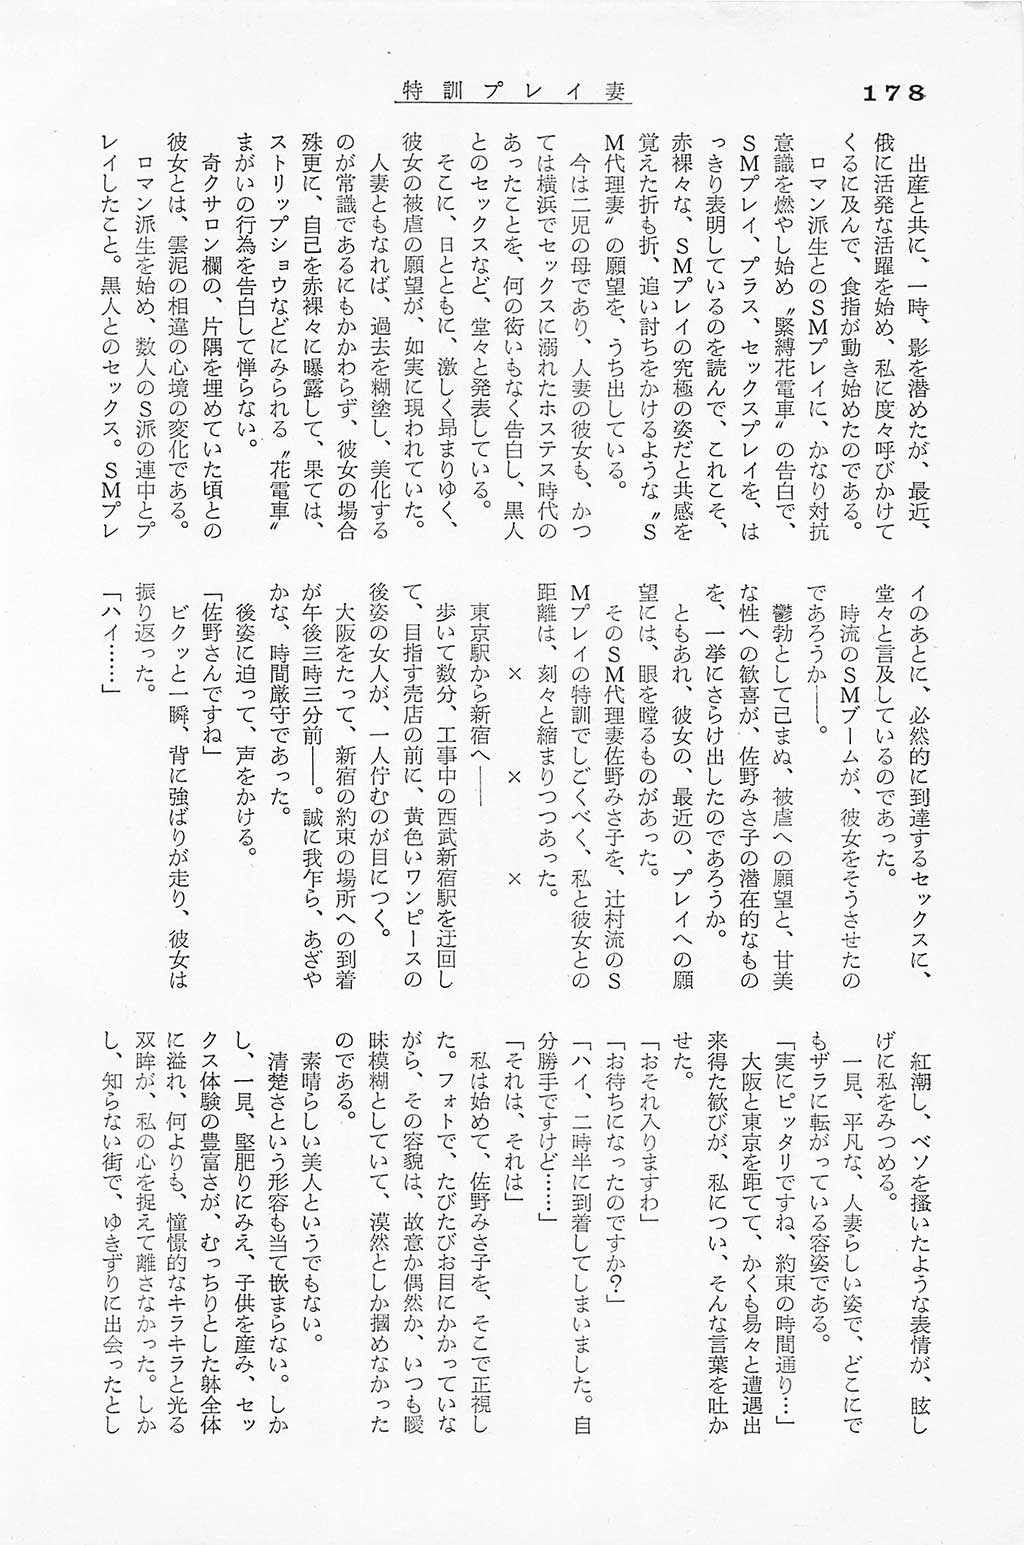 178
特訓プレイ妻
出産と共に、一時、影を潜めたが、最近、
俄に活発な活躍を始め、私に度々呼びかけて
くるに及んで、食指が動き始めたのである。
ロマン派生とのSMプレイに、かなり対抗
意識を燃やし始め〝緊縛花電車〟の告白で、
SMプレイ、プラス、セックスプレイを、は
っきり表明しているのを読んで、これこそ、
赤裸々な、SMプレイの究極の姿だと共感を
覚えた折も折、追い討ちをかけるような〝S
M代理妻〟の願望を、うち出している。
今は二児の母であり、人妻の彼女も、かつ
ては横浜でセックスに溺れたホステス時代の
あったことを、何の衒いもなく告白し、黒人
とのセックスなど、堂々と発表している。
そこに、日とともに、激しく昻まりゆく、
彼女の被虐の願望が、如実に現われていた。
人妻ともなれば、過去を糊塗し、美化する
のが常識であるにもかかわらず、彼女の場合
殊更に、自己を赤裸々に曝露して、果ては、
ストリップショウなどにみられる〝花電車〟
まがいの行為を告白して憚らない。
奇クサロン欄の、片隅を埋めていた頃との
彼女とは、雲泥の相違の心境の変化である。
ロマン派生を始め、数人のS派の連中とプ
レイしたこと。黒人とのセックス。SMプレ
イのあとに、必然的に到達するセックスに、
堂々と言及しているのであった。
時流のSMブームが、彼女をそうさせたの
であろうか――。
鬱勃として己まぬ、被虐への願望と、甘美
な性への歓喜が、佐野みさ子の潜在的なもの
を、一挙にさらけ出したのであろうか。
ともあれ、彼女の、最近の、プレイへの願
望には、眼を瞠るものがあった。
そのSM代理妻佐野みさ子を、辻村流のS
Mプレイの特訓でしごくべく、私と彼女との
距離は、刻々と縮まりつつあった。
×　×　×
東京駅から新宿へ――
歩いて数分、工事中の西武新宿駅を迂回し
て、目指す売店の前に、黄色いワンピースの
後姿の女人が、一人佇むのが目につく。
大阪をたって、新宿の約束の場所への到着
が午後三時三分前――。誠に我乍ら、あざや
かな、時間厳守であった。
後姿に迫って、声をかける。
「佐野さんですね」
ビクッと一瞬、背に強ばりが走り、彼女は
振り返った。
「ハイ……」
紅潮し、ベソを搔いたような表情が、眩し
げに私をみつめる。
一見、平凡な、人妻らしい姿で、どこにで
もザラに転がっている容姿である。
「実にピッタリですね、約束の時間通り…」
大阪と東京を距てて、かくも易々と遭遇出
来得た歓びが、私につい、そんな言葉を吐か
せた。
「おそれ入りますわ」
「お待ちになったのですか？」
「ハイ、二時半に到着してしまいました。自
分勝手ですけど……」
「それは、それは」
私は始めて、佐野みさ子を、そこで正視し
た。フォトで、たびたびお目にかかっていな
がら、その容貌は、故意か偶然か、いつも曖
昧模糊としていて、漠然としか摑めなかった
のである。
素晴らしい美人というでもない。
清楚さという形容も当て嵌まらない。しか
し、一見、堅肥りにみえ、子供を産み、セッ
クス体験の豊富さが、むっちりとした躰全体
に溢れ、何よりも、憧憬的なキラキラと光る
双眸が、私の心を捉えて離さなかった。しか
し、知らない街で、ゆきずりに出会ったとし